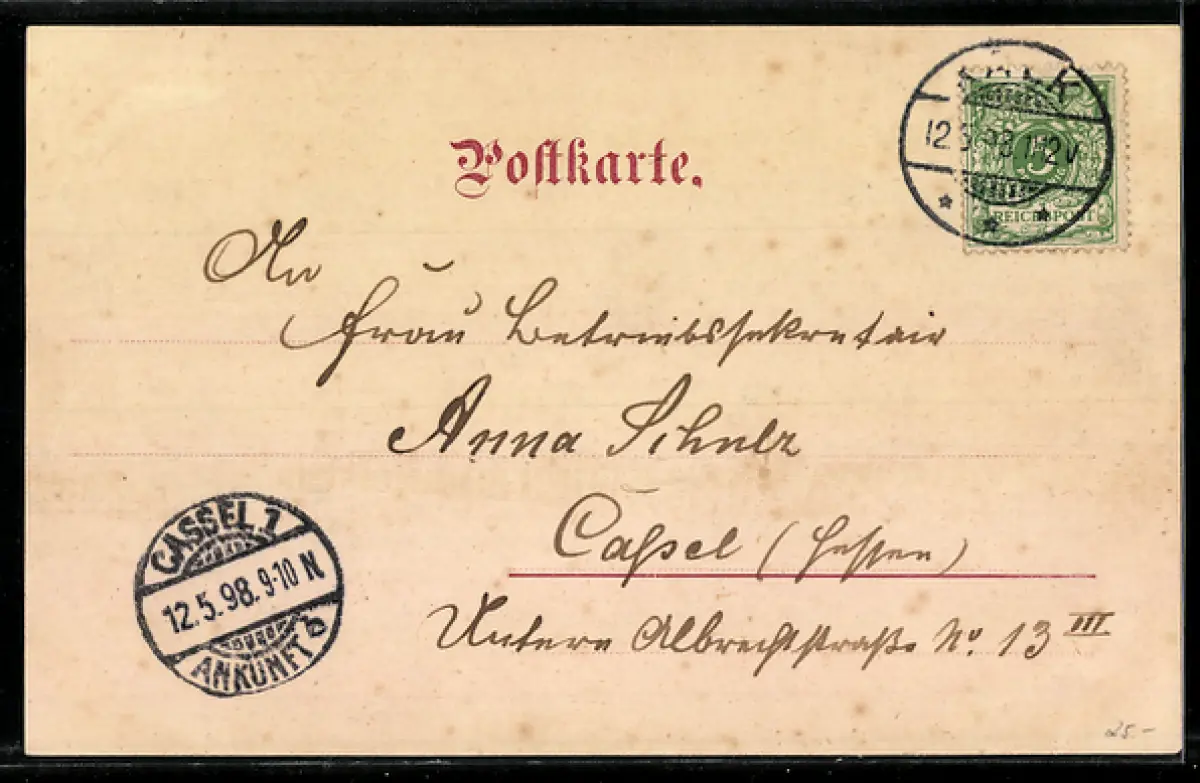 Postkarte.
12.5.98 11-12V
REICHSPOST
An
Frau Betriebssekretair
Anna Schulz
Caßel (Hessen)
Untere Albrechtstraße No. 13 III
CASSEL 1
12.5.98.9-10 N
ANKUNFT b
25.-